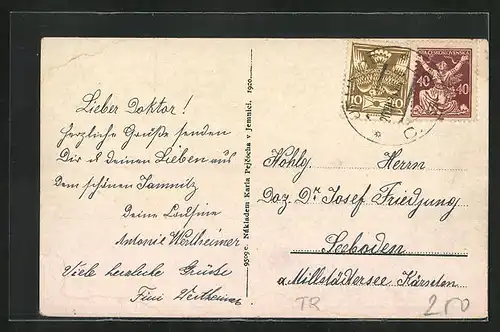 Lieber Doktor!
Herzliche Grüße senden
Dir u deinen Lieben aus
Dem schönen Jamnitz
Deine Cousine
Antonie Wertheimer
Viele herzliche Grüße
Fini Wertheimer
9509 c. Nákladem Karla Pejčocha v Jemnici. 1920.
10 10
POŠTA ČESKOSLOVENSKÁ
40 40
Hohlg. Herrn
Doz. Dr. Josef Friedjung
Seeboden
a. Millstädtersee. Kärnten
TR
200